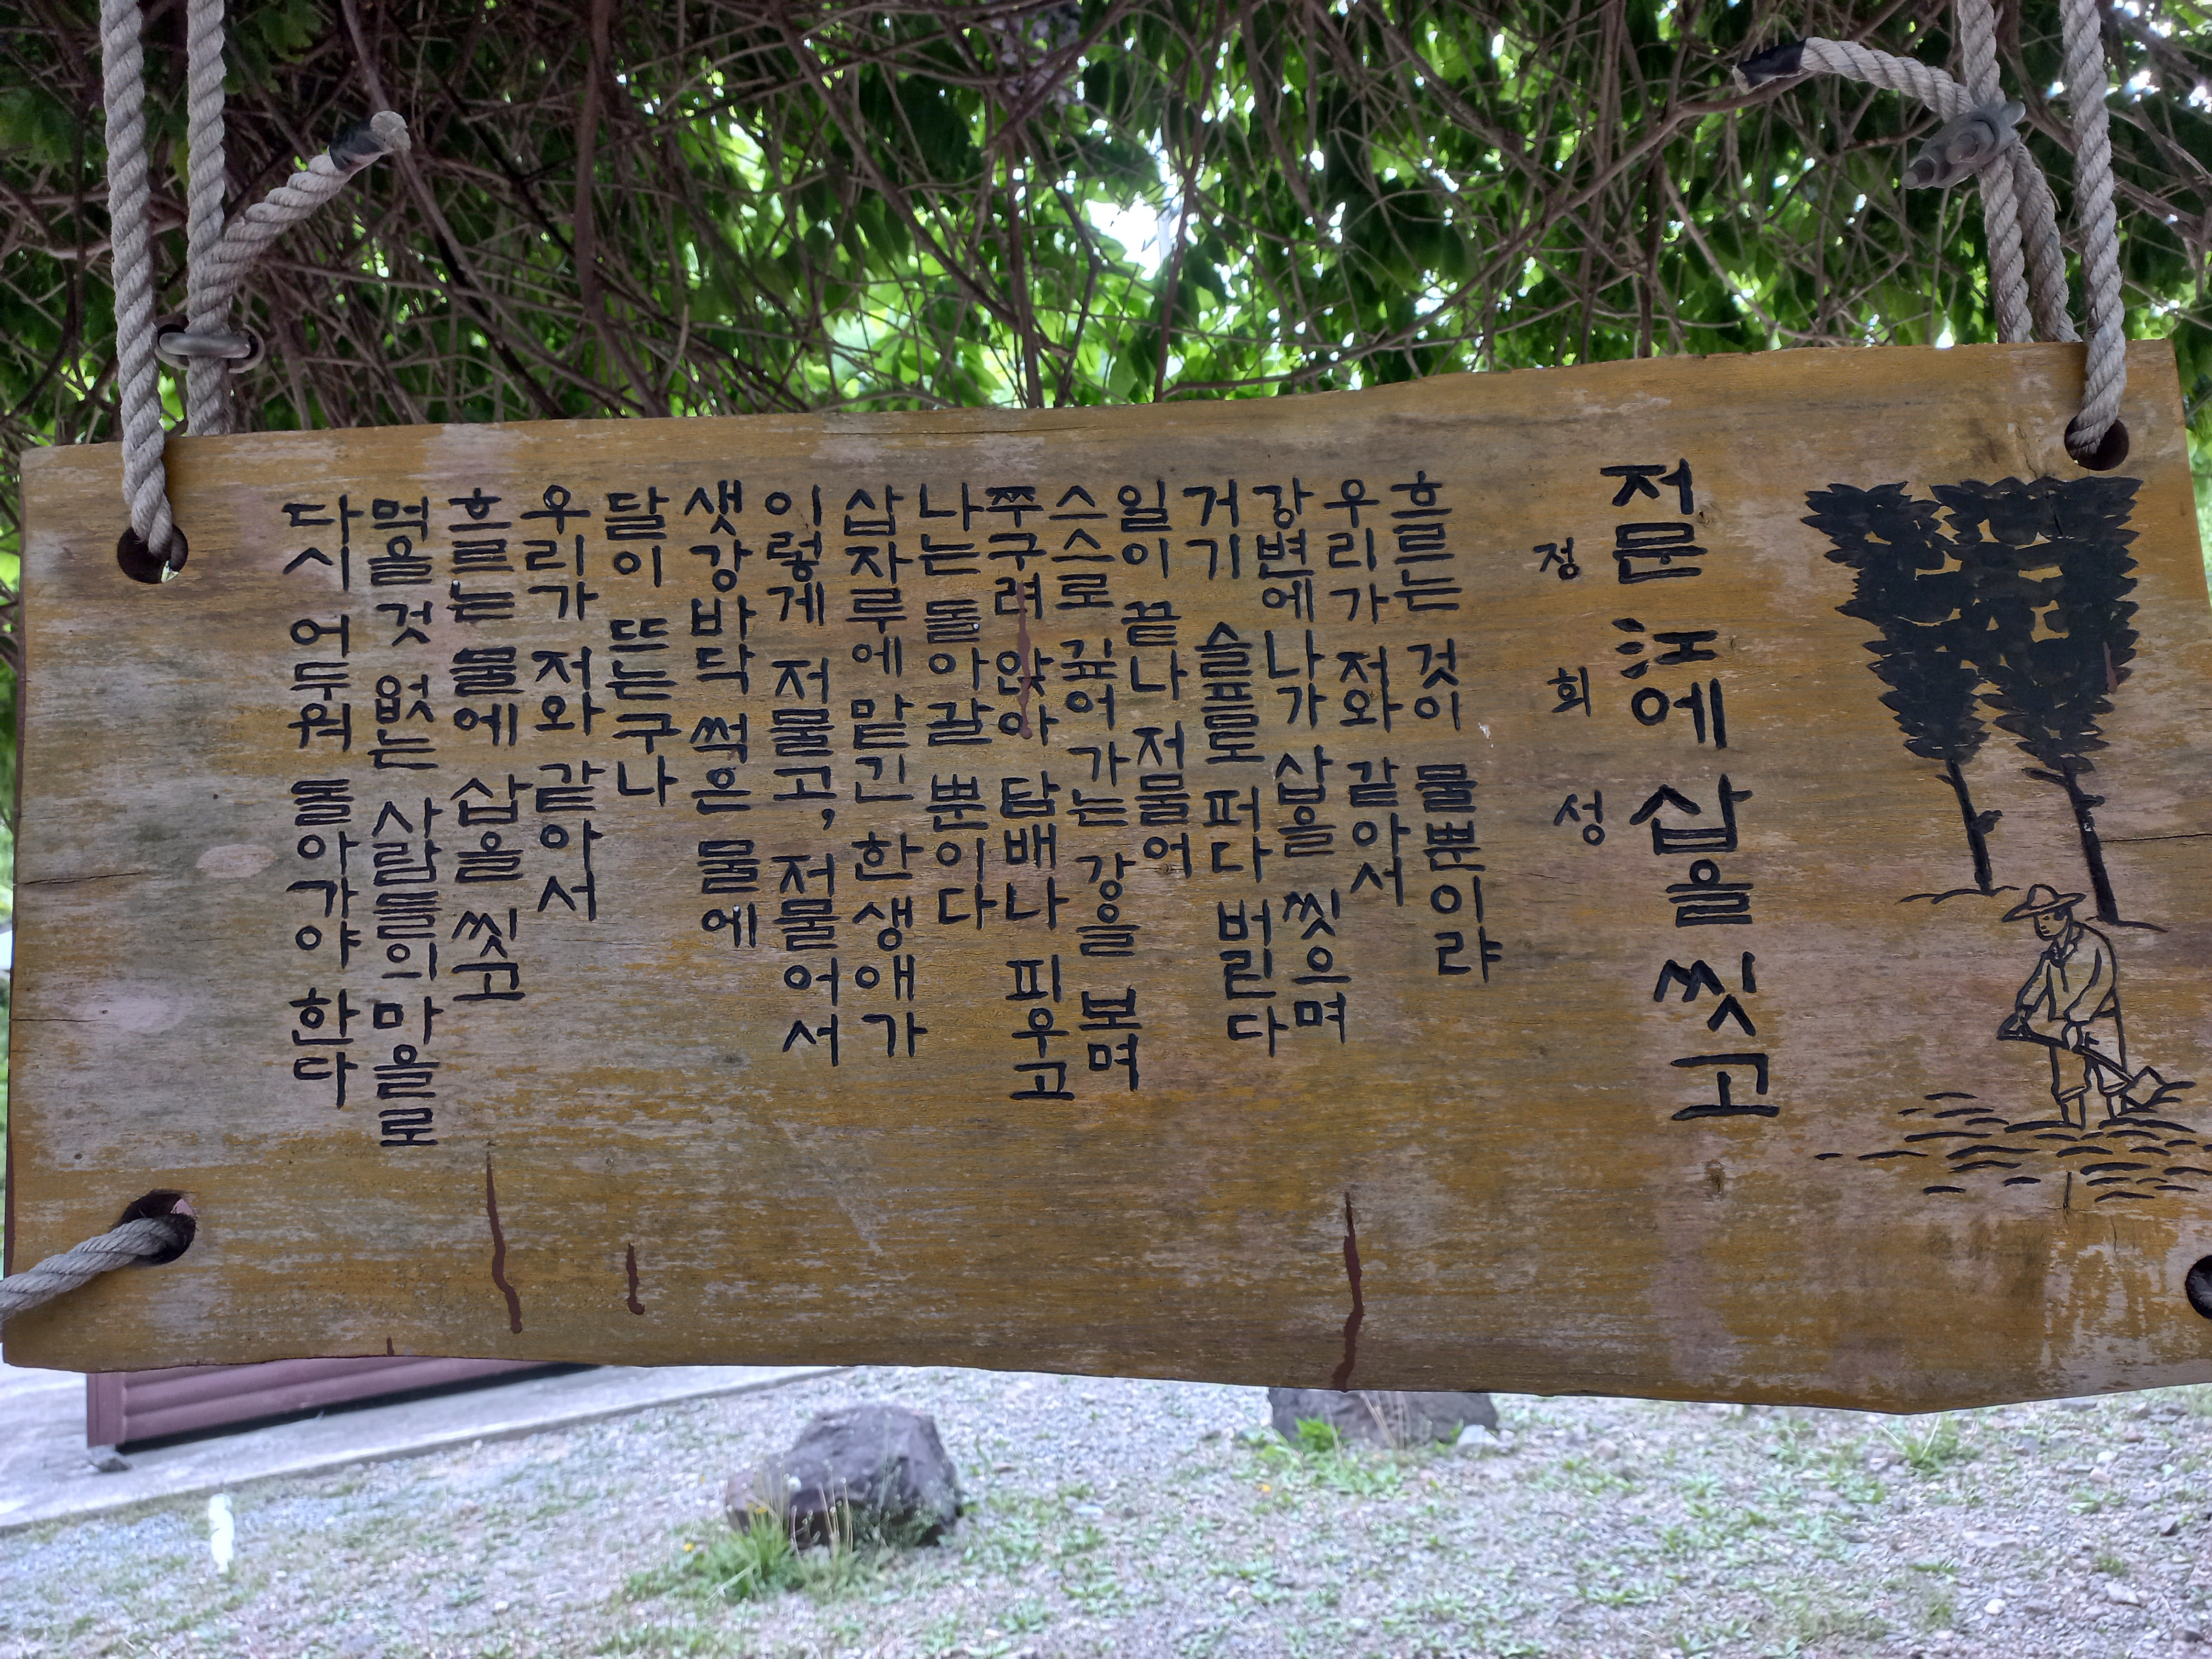 저문 江에 삽을 씻고
정 희 성
흐르는 것이 물뿐이랴
우리가 저와 같아서
강변에 나가 삽을 씻으며
거기 슬픔도 퍼다 버린다
일이 끝나 저물어
스스로 깊어 가는 강을 보며
쭈구려 앉아 담배나 피우고
나는 돌아갈 뿐이다
삽자루에 맡긴 한 생애가
이렇게 저물고, 저물어서
샛강바닥 썩은 물에
달이 뜨는구나
우리가 저와 같아서
흐르는 물에 삽을 씻고
먹을 것 없는 사람들의 마을로
다시 어두워 돌아가야 한다